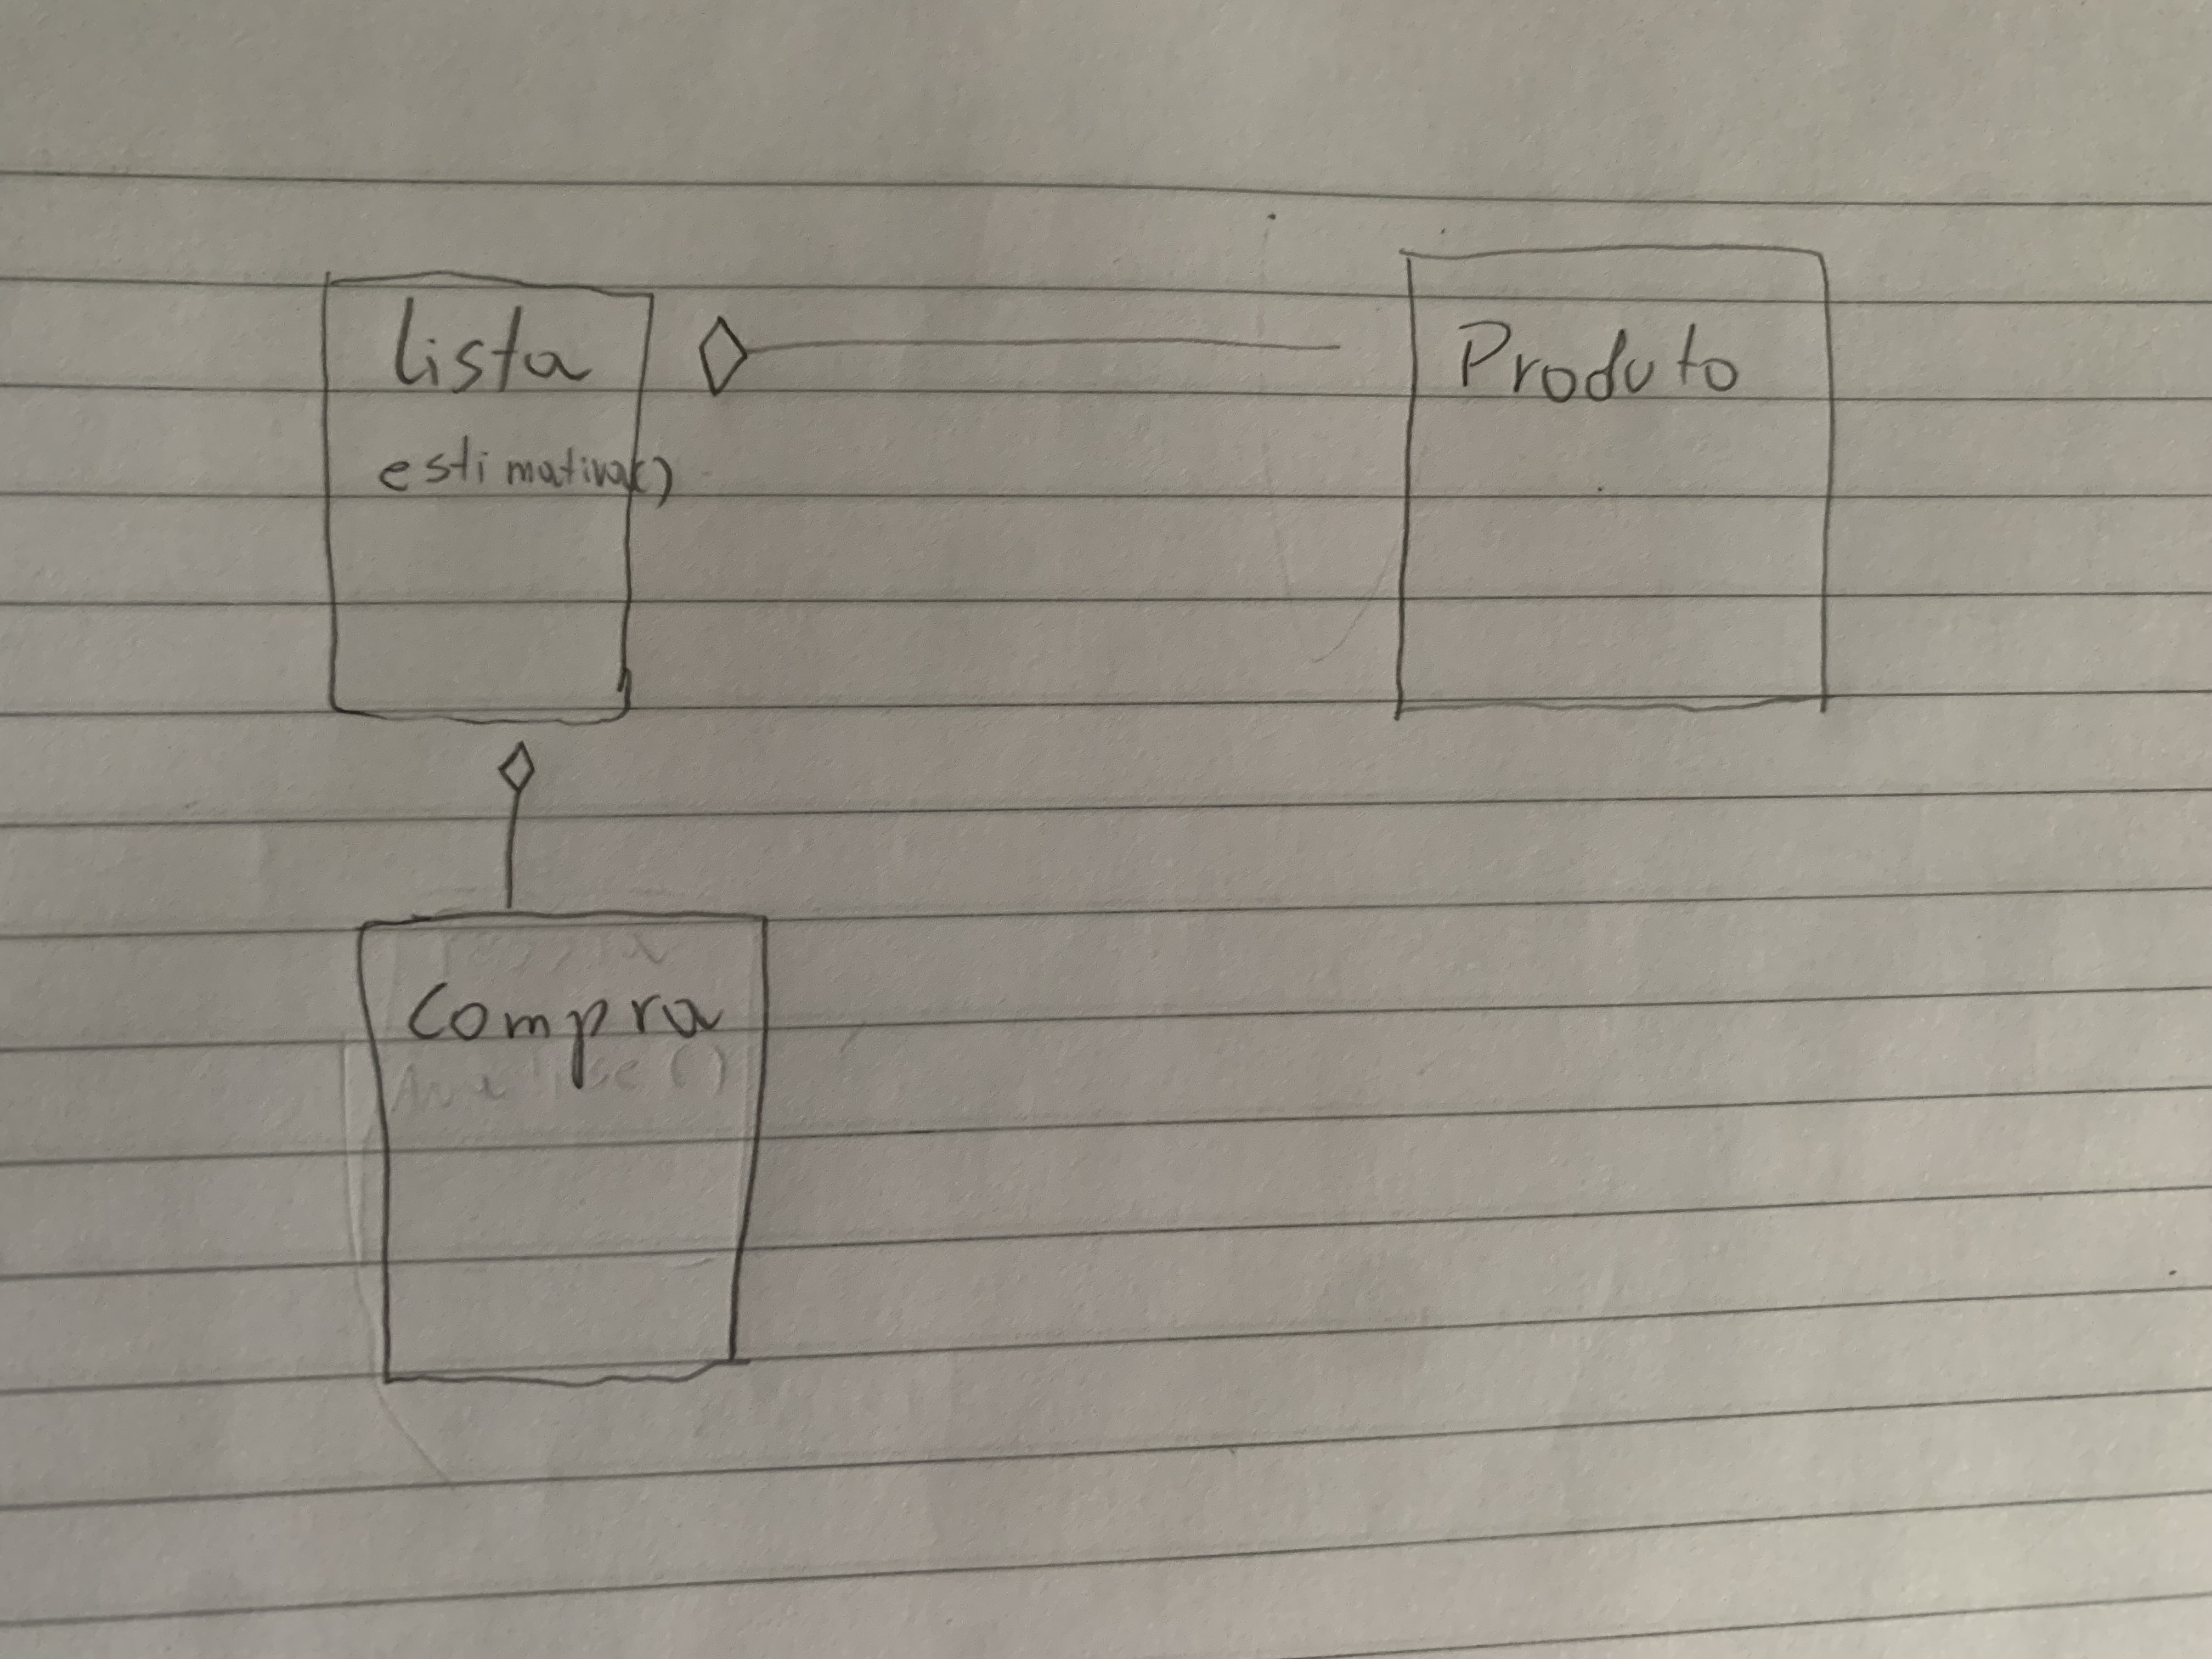 Lista
estimativa()
Produto
Compra